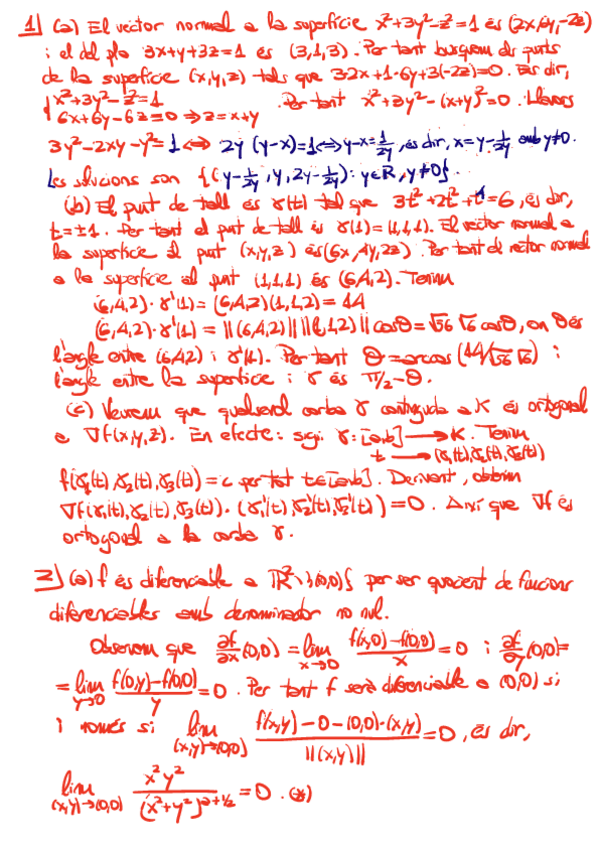 1] (a) El vector normal a la superfície x²+3y²-z²=1 és (2x,6y,-2z)
i el del pla 3x+y+3z=1 és (3,1,3). Per tant busquem els punts
de la superfície (x,y,z) tals que 3·2x+1·6y+3(-2z)=0. És dir,
{ x²+3y²-z²=1
6x+6y-6z=0 ⇒ z=x+y . Per tant x²+3y²-(x+y)²=0. Llavors
3y²-2xy-y²=1 ⇔ 2y (y-x)=1 ⇔ y-x=1/2y, és dir, x=y-1/2y amb y≠0.
Les solucions son {(y-1/2y, y, 2y-1/2y): y∈R, y≠0}.
(b) El punt de tall és γ(t) tal que 3t²+2t²+t⁴=6, és dir,
t=±1. Per tant el punt de tall és γ(1)=(1,1,1). El vector normal a
la superfície al punt (x,y,z) és (6x,4y,2z). Per tant el vector normal
a la superfície al punt (1,1,1) és (6,4,2). Tenim
(6,4,2)·γ'(1)=(6,4,2)(1,1,2)=14
(6,4,2)·γ'(1)=||(6,4,2)|| ||(1,1,2)|| cosθ=√56 √6 cosθ, on θ és
l'angle entre (6,4,2) i γ'(1). Per tant θ=arcos(14/√56 √6) i
l'angle entre la superfície i γ és π/2-θ.
(c) Veurem que qualsevol corba γ continguda a K és ortogonal
a ∇f(x,y,z). En efecte: sigui γ:[a,b]→K. Tenim
t→(γ₁(t),γ₂(t),γ₃(t))
f(γ₁(t),γ₂(t),γ₃(t))=c per tot t∈[a,b]. Derivant, obtenim
∇f(γ₁(t),γ₂(t),γ₃(t))·(γ₁'(t),γ₂'(t),γ₃'(t))=0. Així que ∇f és
ortogonal a la corba γ.
2] (a) f és diferenciable a R²\{(0,0)} per ser quocient de funcions
diferenciables amb denominador no nul.
Observem que ∂f/∂x(0,0)=lim x→0 (f(x,0)-f(0,0))/x=0 i ∂f/∂y(0,0)=
=lim y→0 (f(0,y)-f(0,0))/y=0. Per tant f serà diferenciable a (0,0) si
i només si lim (x,y)→(0,0) (f(x,y)-0-(0,0)·(x,y))/||(x,y)||=0, és dir,
lim (x,y)→(0,0) x²y²/(x²+y²)^(2+1/2)=0. (*)